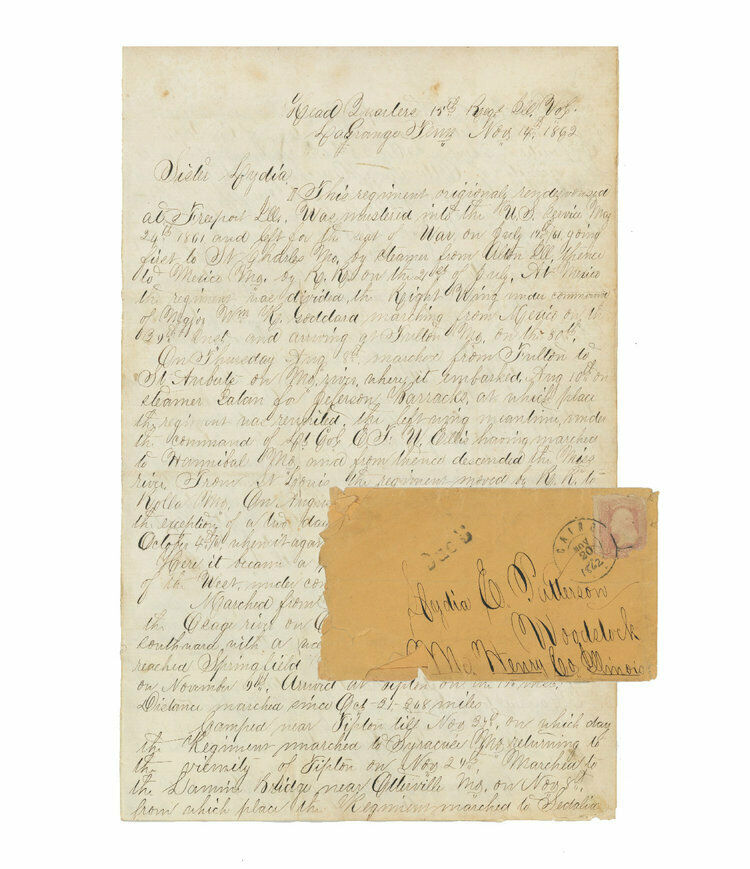 Head Quarters 15th Regt Ill. Vol.
LaGrange Tenn Nov 14, 1862
Sister Lydia
This regiment origionaly rendezvoused
at Freeport Ills. Was mustered into the U.S. Service May
24th 1861 and left for the seat of War on July going
first to St Charles Mo. by steamer from Alton Ill. thence
to Mexico Mo. by R. R. on the 21st of July. At Mexico
the regiment was divided the Right Wing under command
of Major Wm R. Goddard marching from Mexico on the
29th Inst. and arriving at Fulton Mo. on the 30th.
On Thursday Aug 8th marched from Fulton to
St Auberts on Mo. river, where it embarked Aug 10th on
steamer Satan for Jeferson Barracks, at which place
the regiment was reunited, the left wing meantime, under
the command of Lt Col E. F. W. Ellis having marched
to Hannibal Mo. and from thence descended the Miss
river. From St Louis the regiment moved by R. R. to
Rolla Mo. On Augus
the exception of a two day
October 4th when it again
Here it became a
of the West, under com
Marched from
the Osage river on
southward, with a
reached Springfield
on November 9th. Arrived at Tipton on the
Distance marched since Oct 21- 268 miles
Camped near Tipton till Nov on which day
the Regiment marched to Syracuse Mo. returning to
the vicinity of Tipton on Nov 29th Marched to
the Lamine Bridge near Otterville Mo. on
from which place the Regiment marched to Sedalia
Due 3
CAIRO
NOV
20
1862
Lydia E. Patterson
Woodstock
Mc Henry Co Illinois